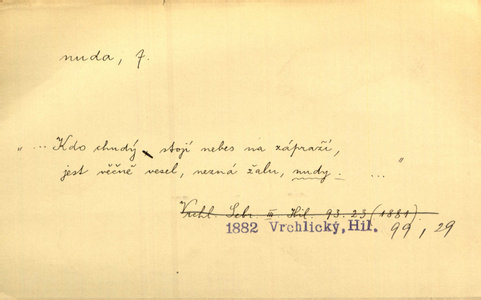 nuda, f.
„ ... Kdo chudý stojí nebes na zápraží,
jest věčně vesel, nezná žalu, nudy. ... "
Vrchl. Sebr. III. Hil. 93. 23 (1881)
1882 Vrchlický, Hil. 99, 29